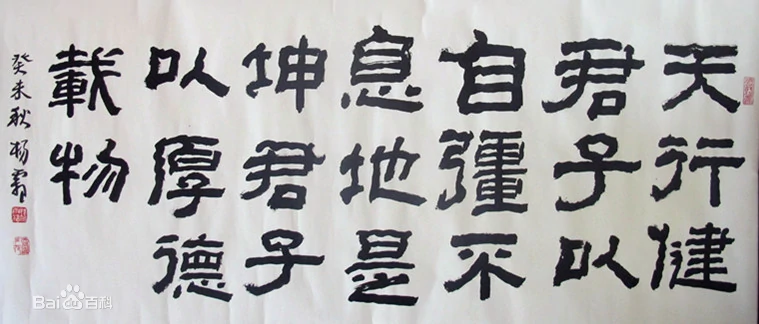 天行健
君子以
自彊不
息地是
坤君子
以厚德
載物
癸未秋杨
Bai百科